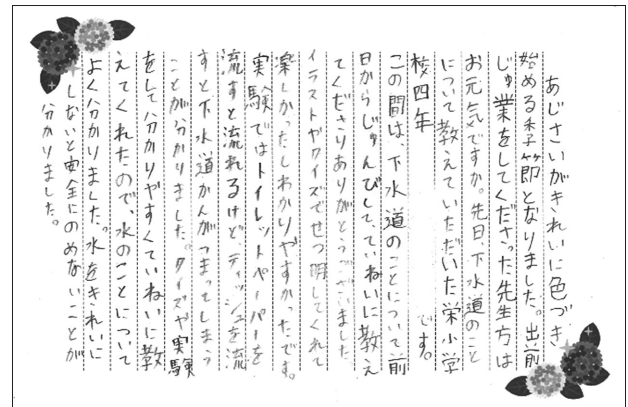 あじさいがきれいに色づき
始める季節となりました。出前
じゅ業をしてくださった先生方は
お元気ですか。先日、下水道のこと
について教えていただいた栄小学
校四年　　　　　　です。
この間は、下水道のことについて前
日からじゅんびして、ていねいに教え
てくださりありがとうございました
イラストやクイズでせつ明してくれて
楽しかったしわかりやすかったです。
実験ではトイレットペーパーを
流すと流れるけど、ティッシュを流
すと下水道かんがつまってしまう
ことが分かりました。クイズや実験
をして分かりやすくていねいに教
えてくれたので、水のことについて
よく分かりました。水をきれいに
しないと安全にのめないことが
分かりました。